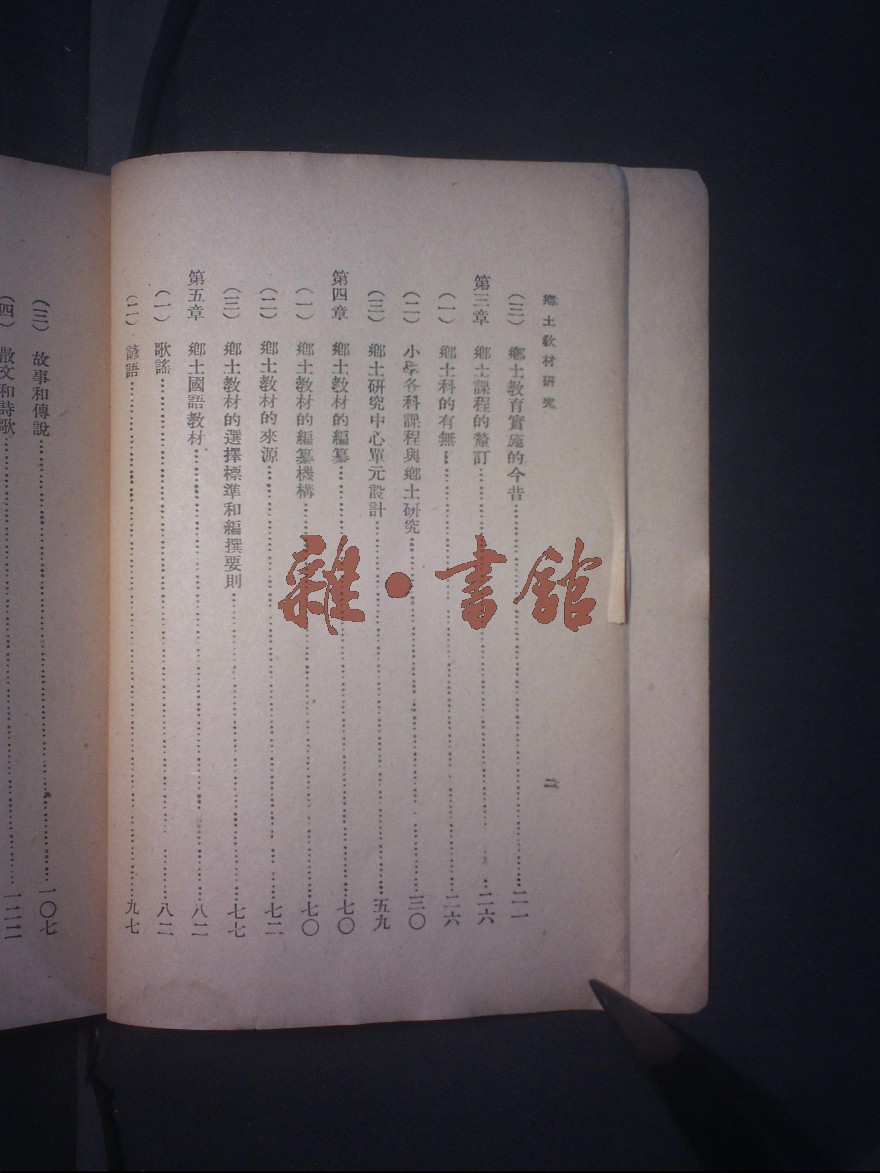 鄉土教材研究
二
(三) 鄉土教育實施的今昔……二一
第三章 鄉土課程的釐訂……二六
(一) 鄉土科的有無……二六
(二) 小學各科課程與鄉土研究……三〇
(三) 鄉土研究中心單元設計……五九
第四章 鄉土教材的編纂……七〇
(一) 鄉土教材的編纂機構……七〇
(二) 鄉土教材的來源……七二
(三) 鄉土教材的選擇標準和編撰要則……七七
第五章 鄉土國語教材……八二
(一) 歌謠……八二
(二) 諺語……九七
(三) 故事和傳說……一〇七
(四) 散文和詩歌
雜·書館